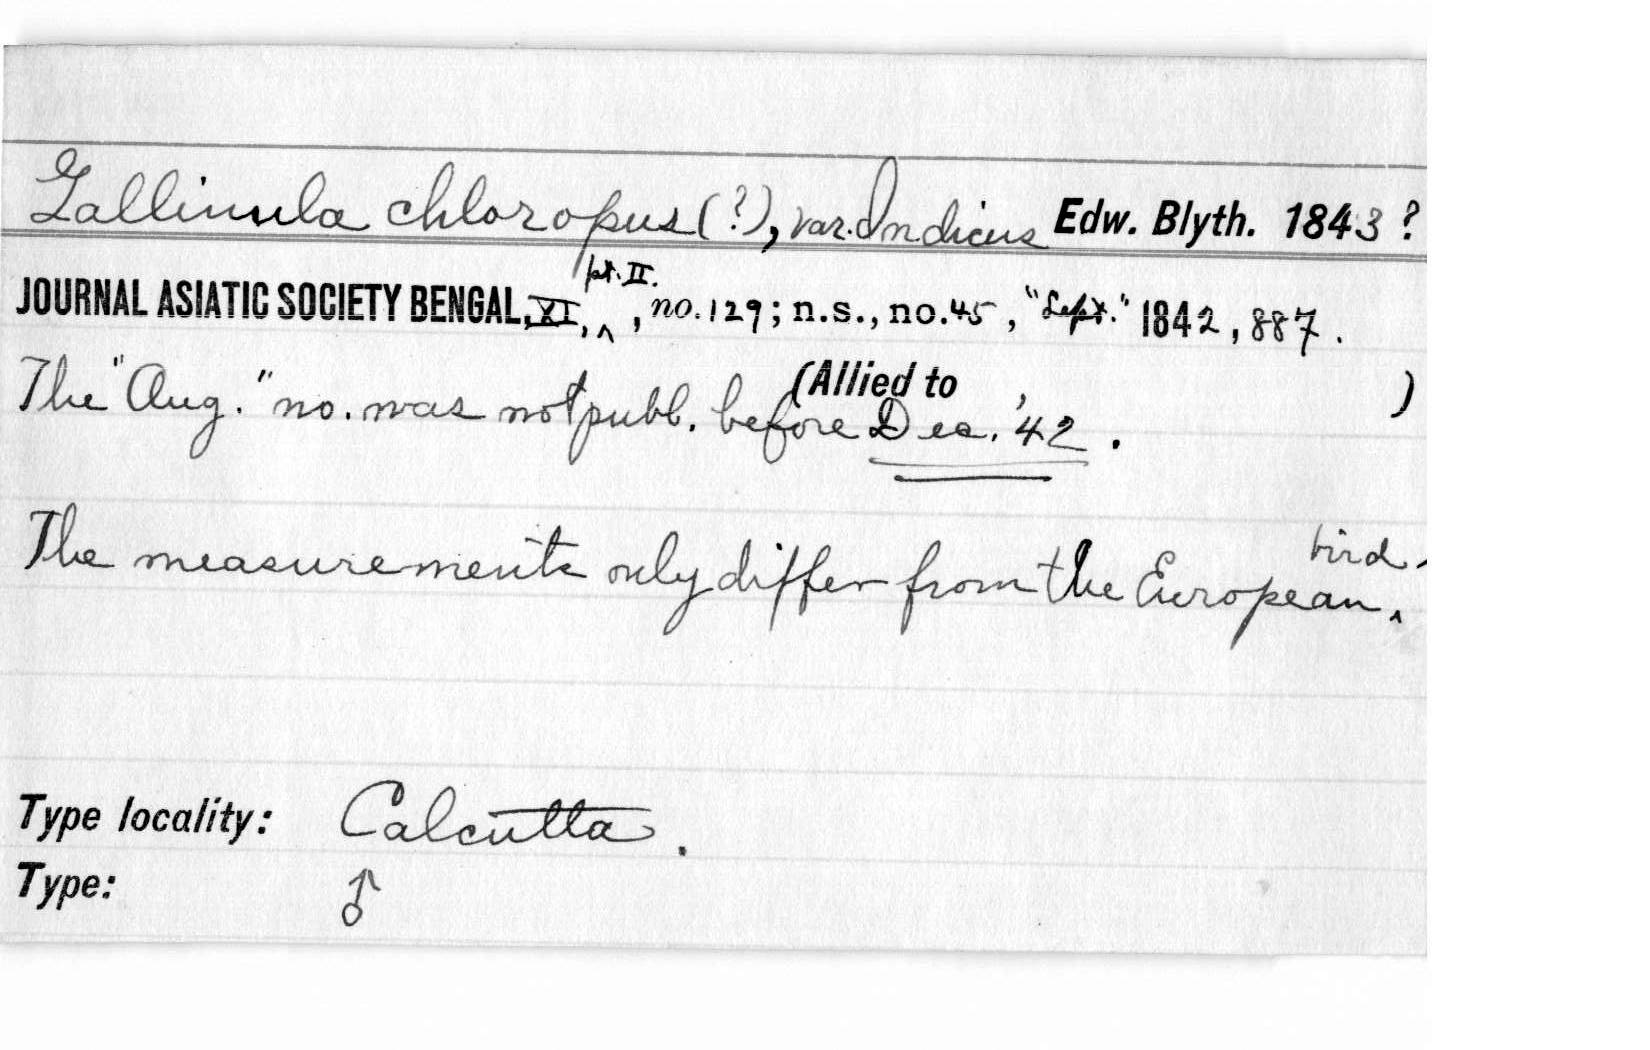 Gallinula chloropus (?), var. Indicus Edw. Blyth. 1843 ?
JOURNAL ASIATIC SOCIETY BENGAL, XI, pt. II. , no. 129; n.s., no. 45, "Sept." 1842, 887.
(Allied to , )
The "Aug." no. was not publ. before Dec. '42.
The measurements only differ from the European bird.
Type locality: Calcutta.
Type: ♂